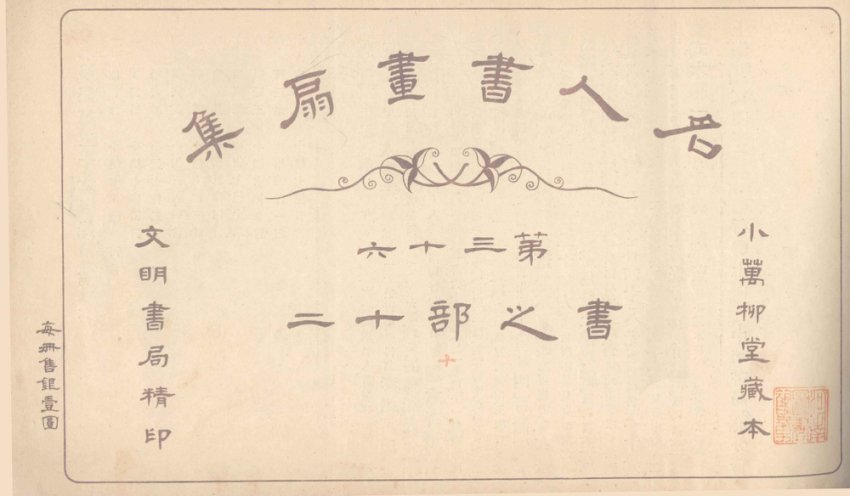 名人書畫扇集
第三十六
書之部十二
十
小萬柳堂藏本
文明書局精印
每冊售銀壹圓